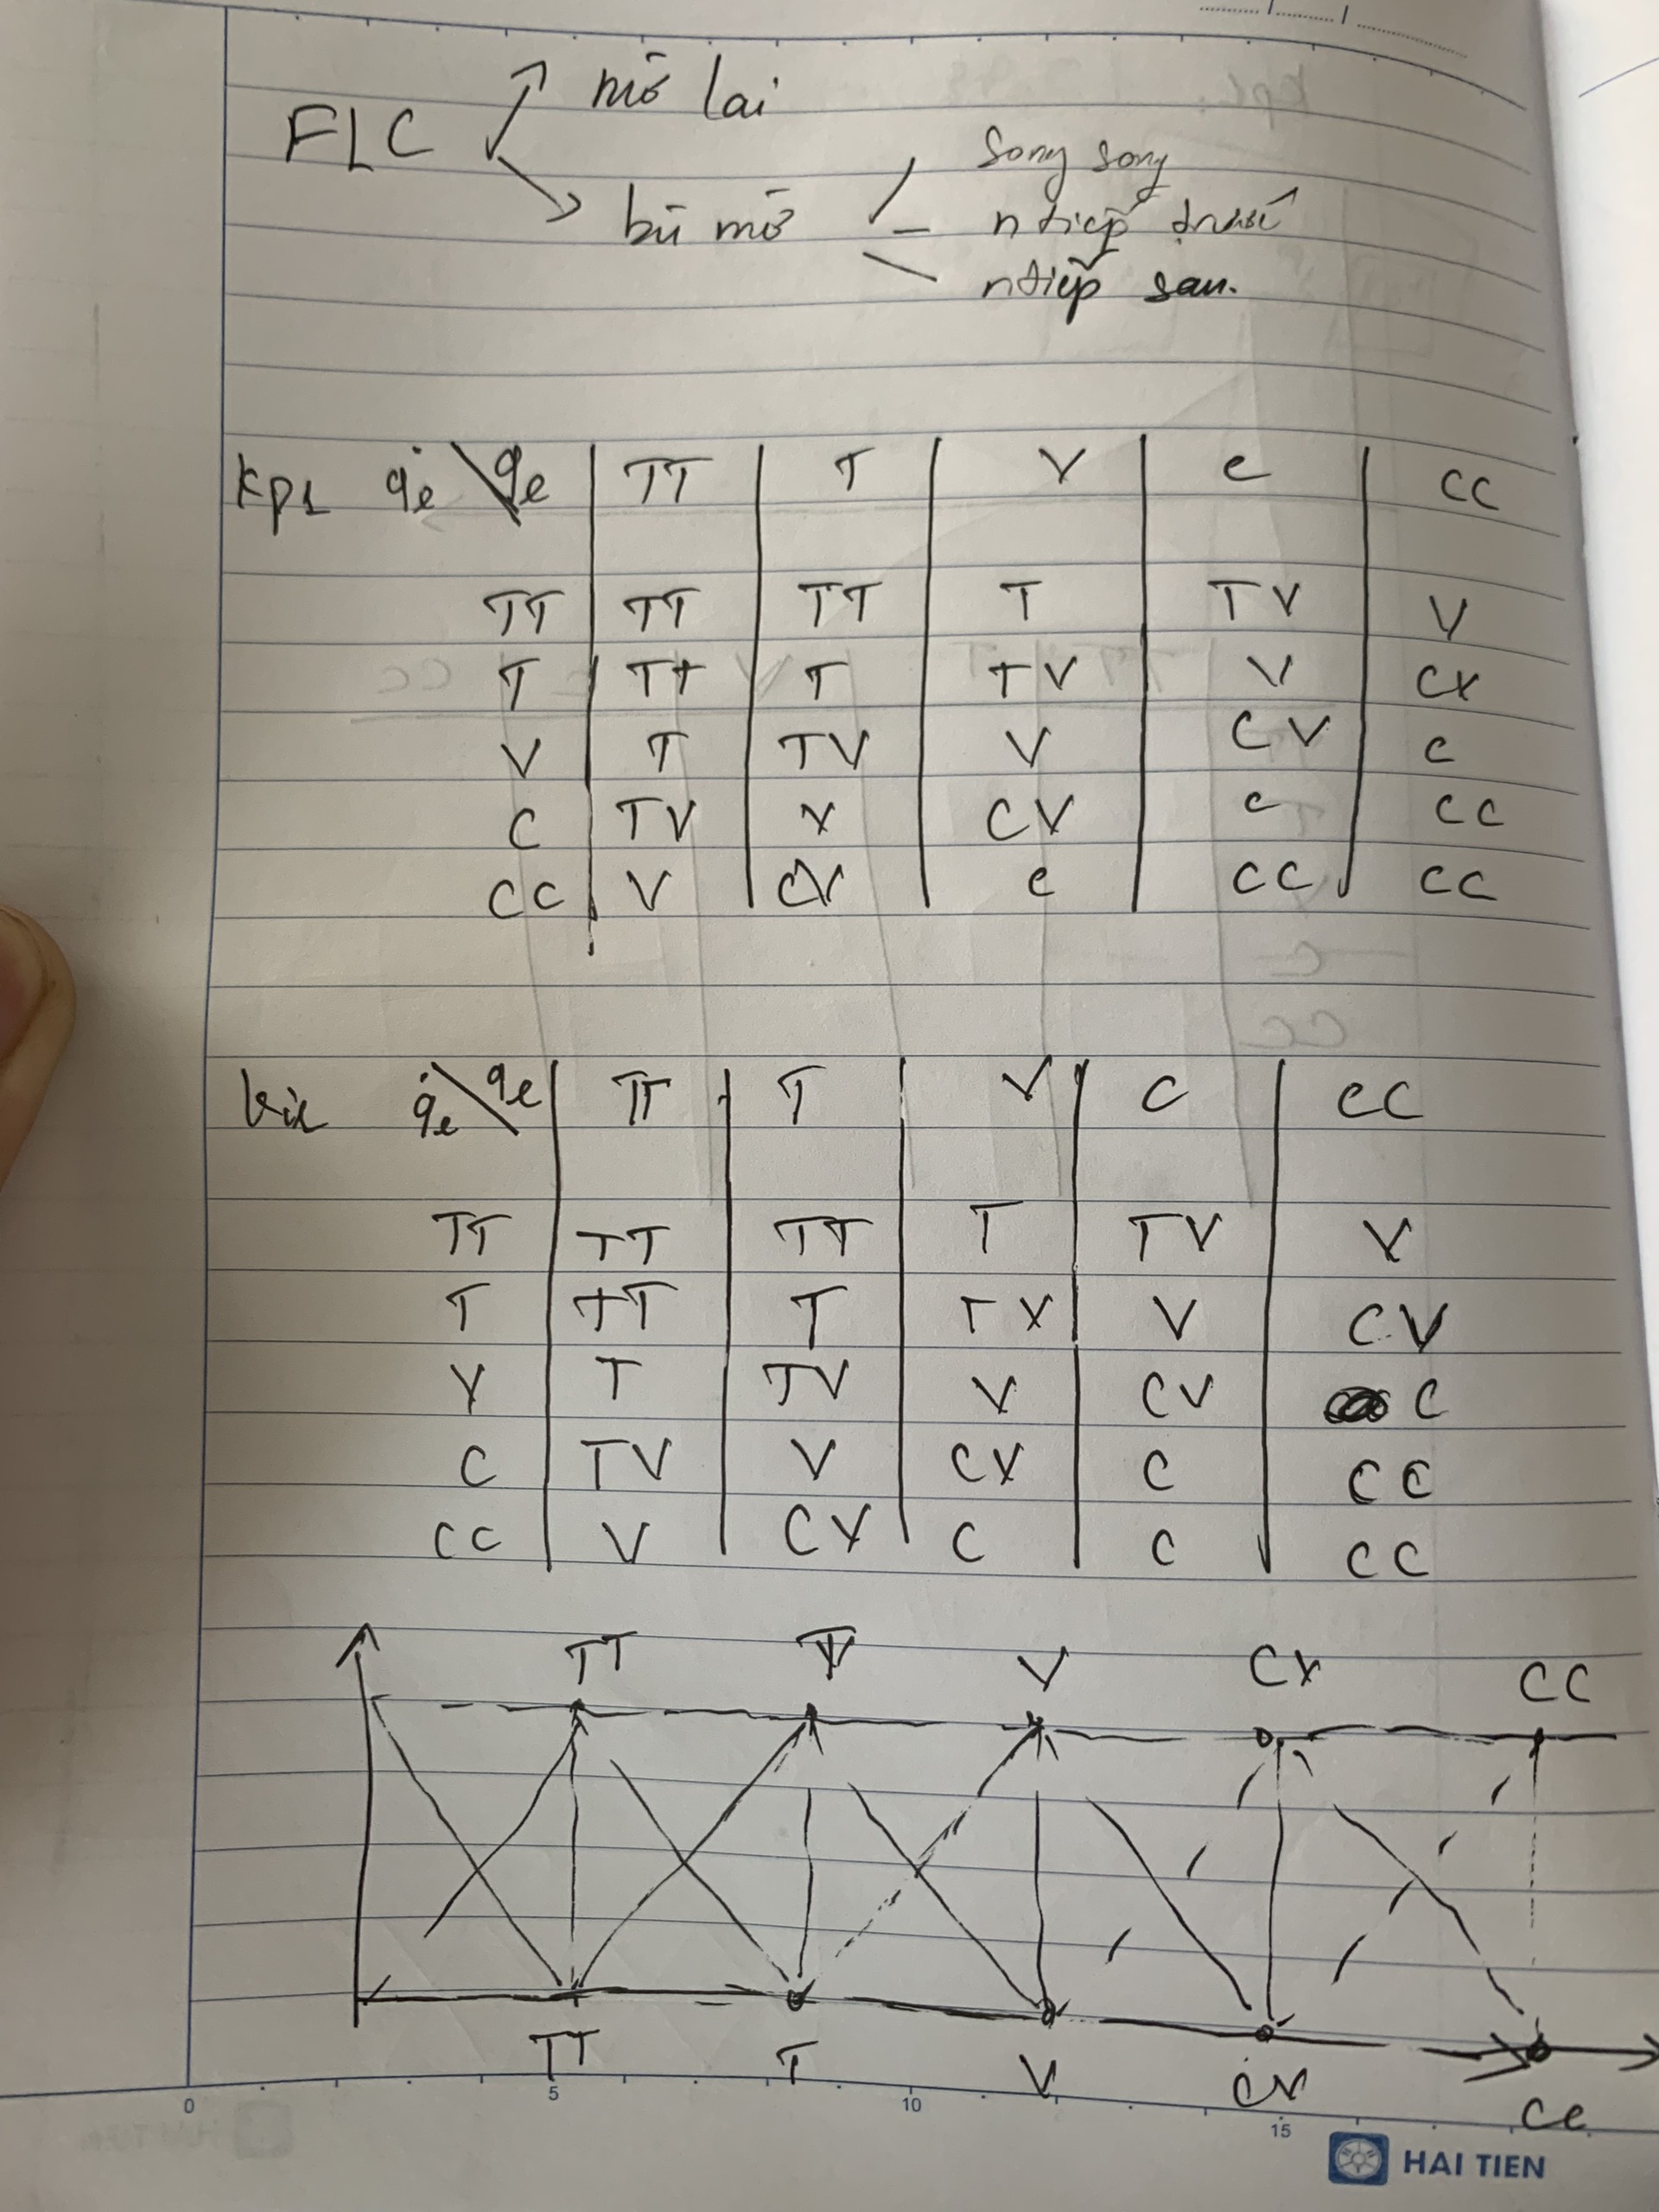 FLC mờ lai
bù mờ
song song
n tiếp trước
n tiếp sau.
Kp1 q̇e \ qe TT T V C CC
TT TT TT T TV V
T TT T TV V CV
V T TV V CV C
C TV V CV C CC
CC V CV C CC CC
q̇e \ qe TT T V C CC
TT TT TT T TV V
T TT T TV V CV
V T TV V CV C
C TV V CV C CC
CC V CV C C CC
TT V CV CC
TT T V CV CC
0 5 10 15
HAI TIEN